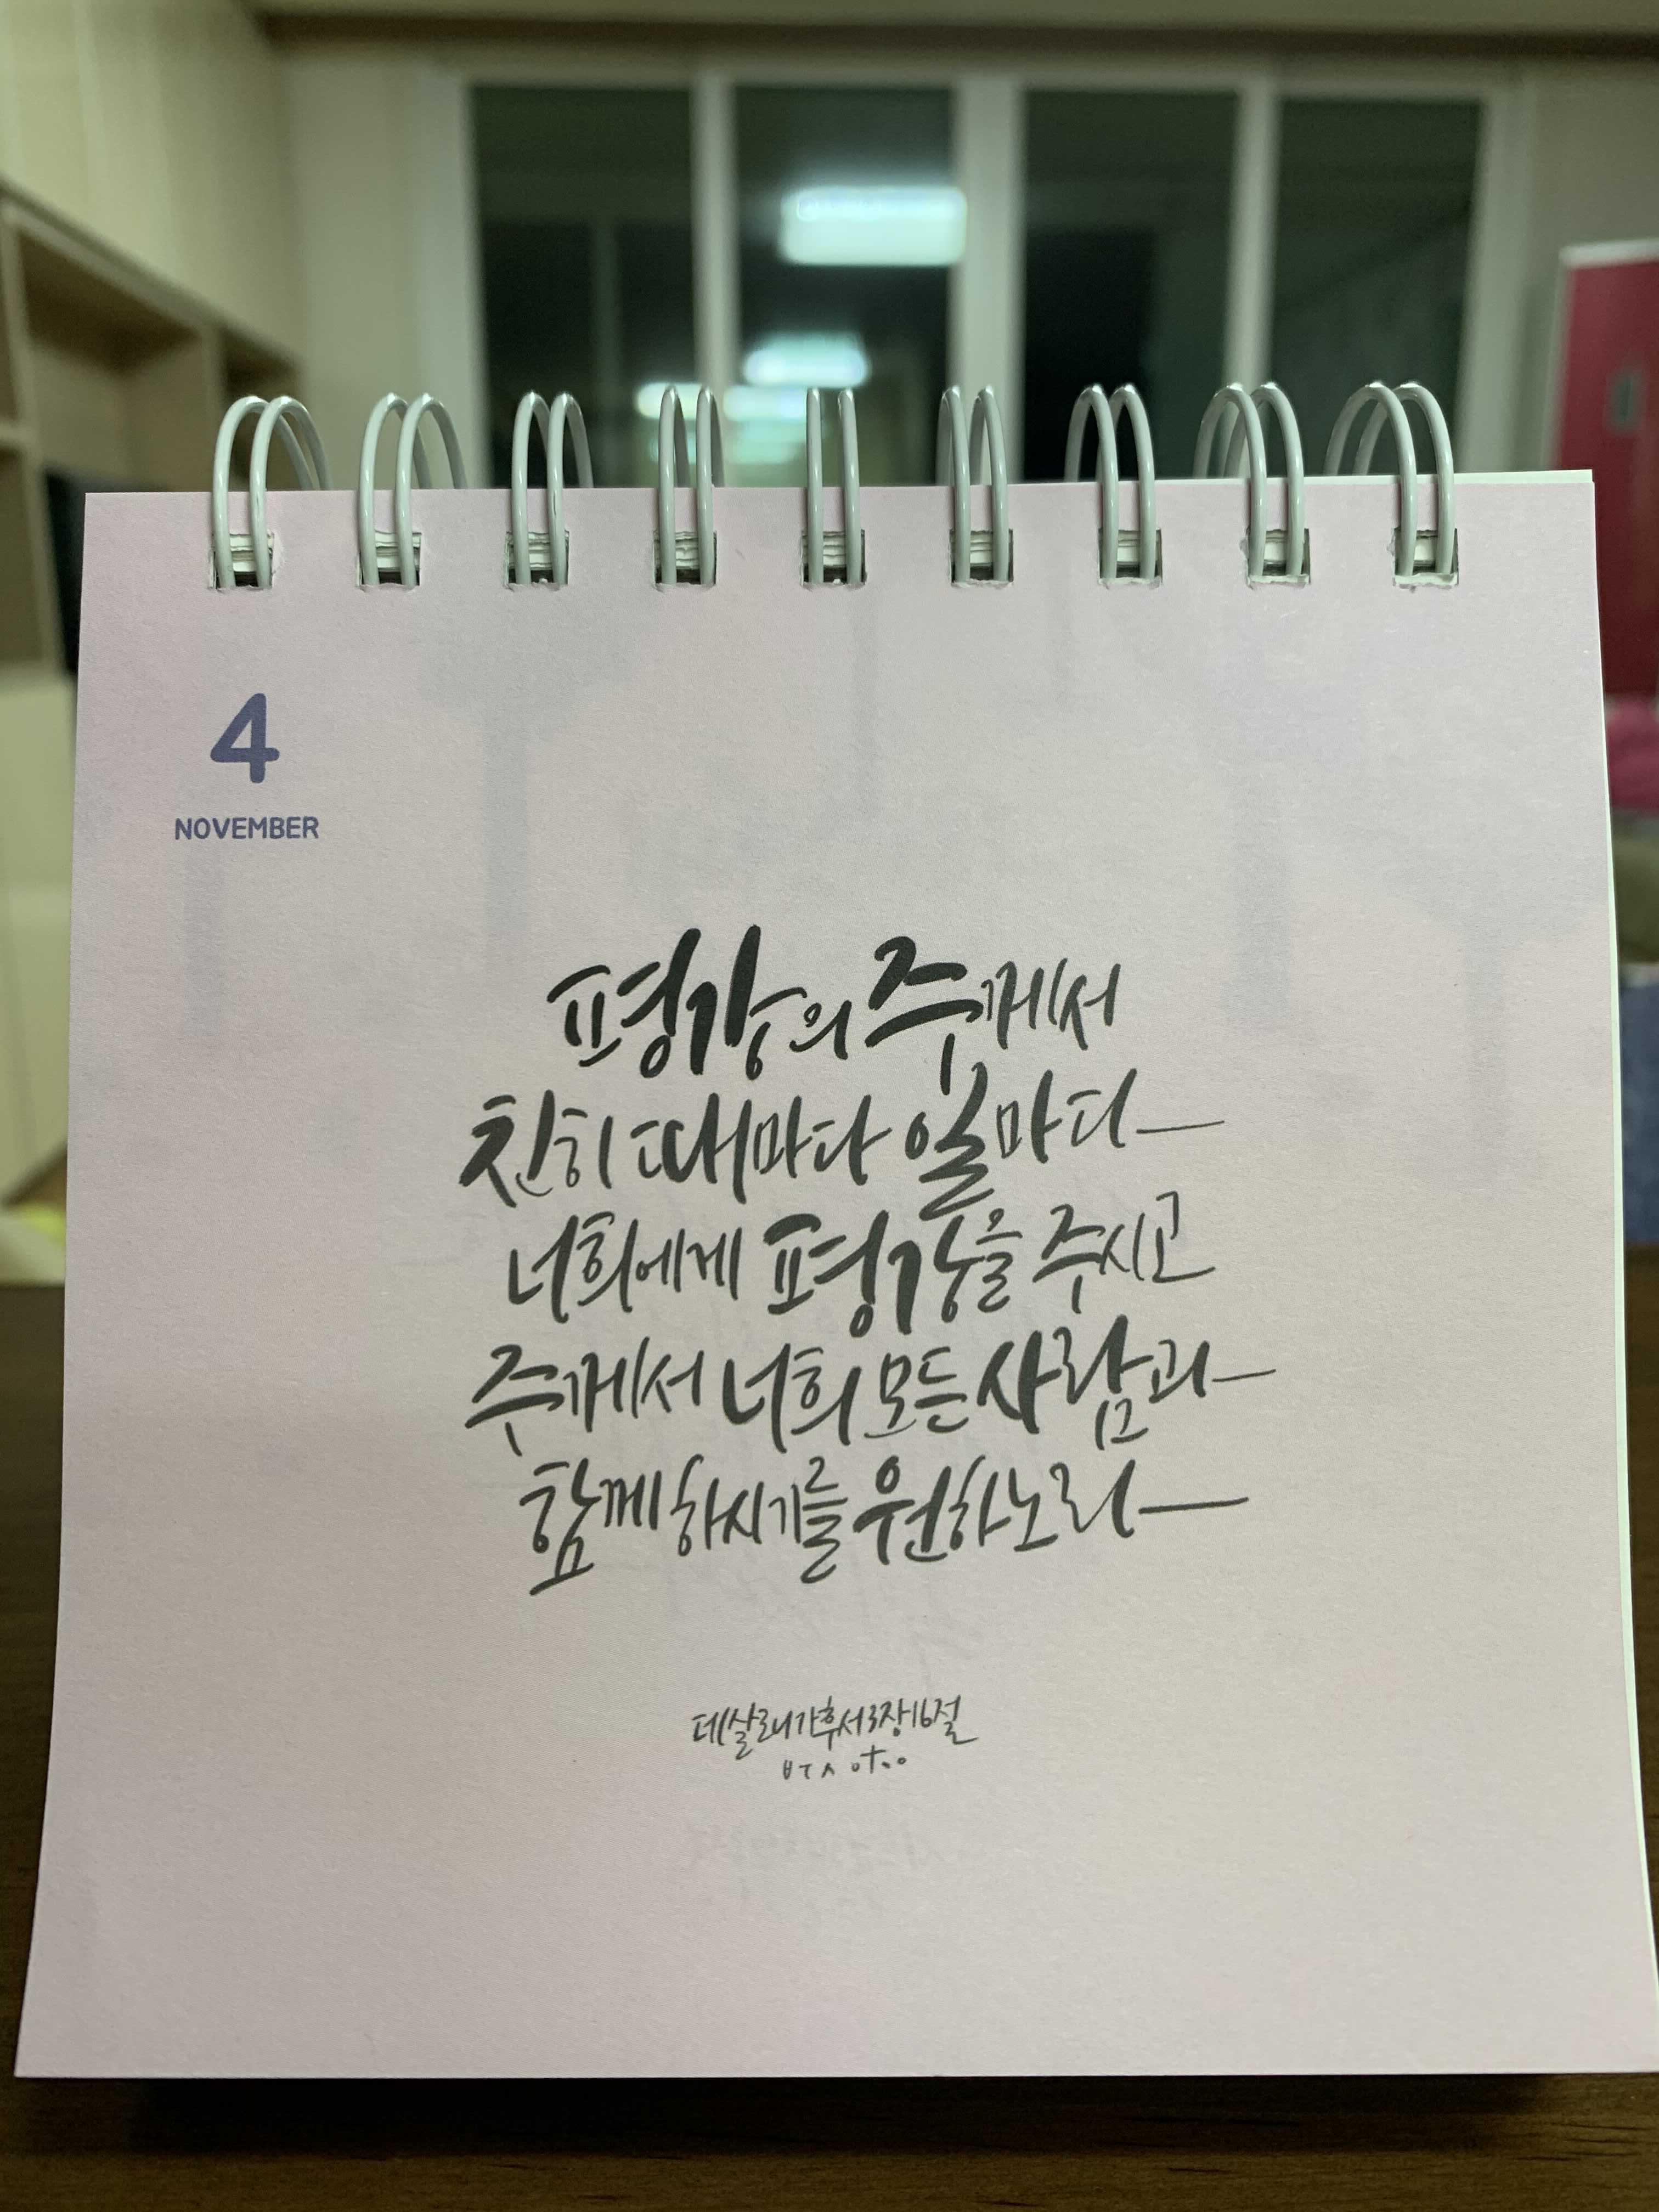 4
NOVEMBER
평강의 주께서
친히 때마다 일마다
너희에게 평강을 주시고
주께서 너희 모든 사람과
함께 하시기를 원하노라
데살로니가후서3장16절